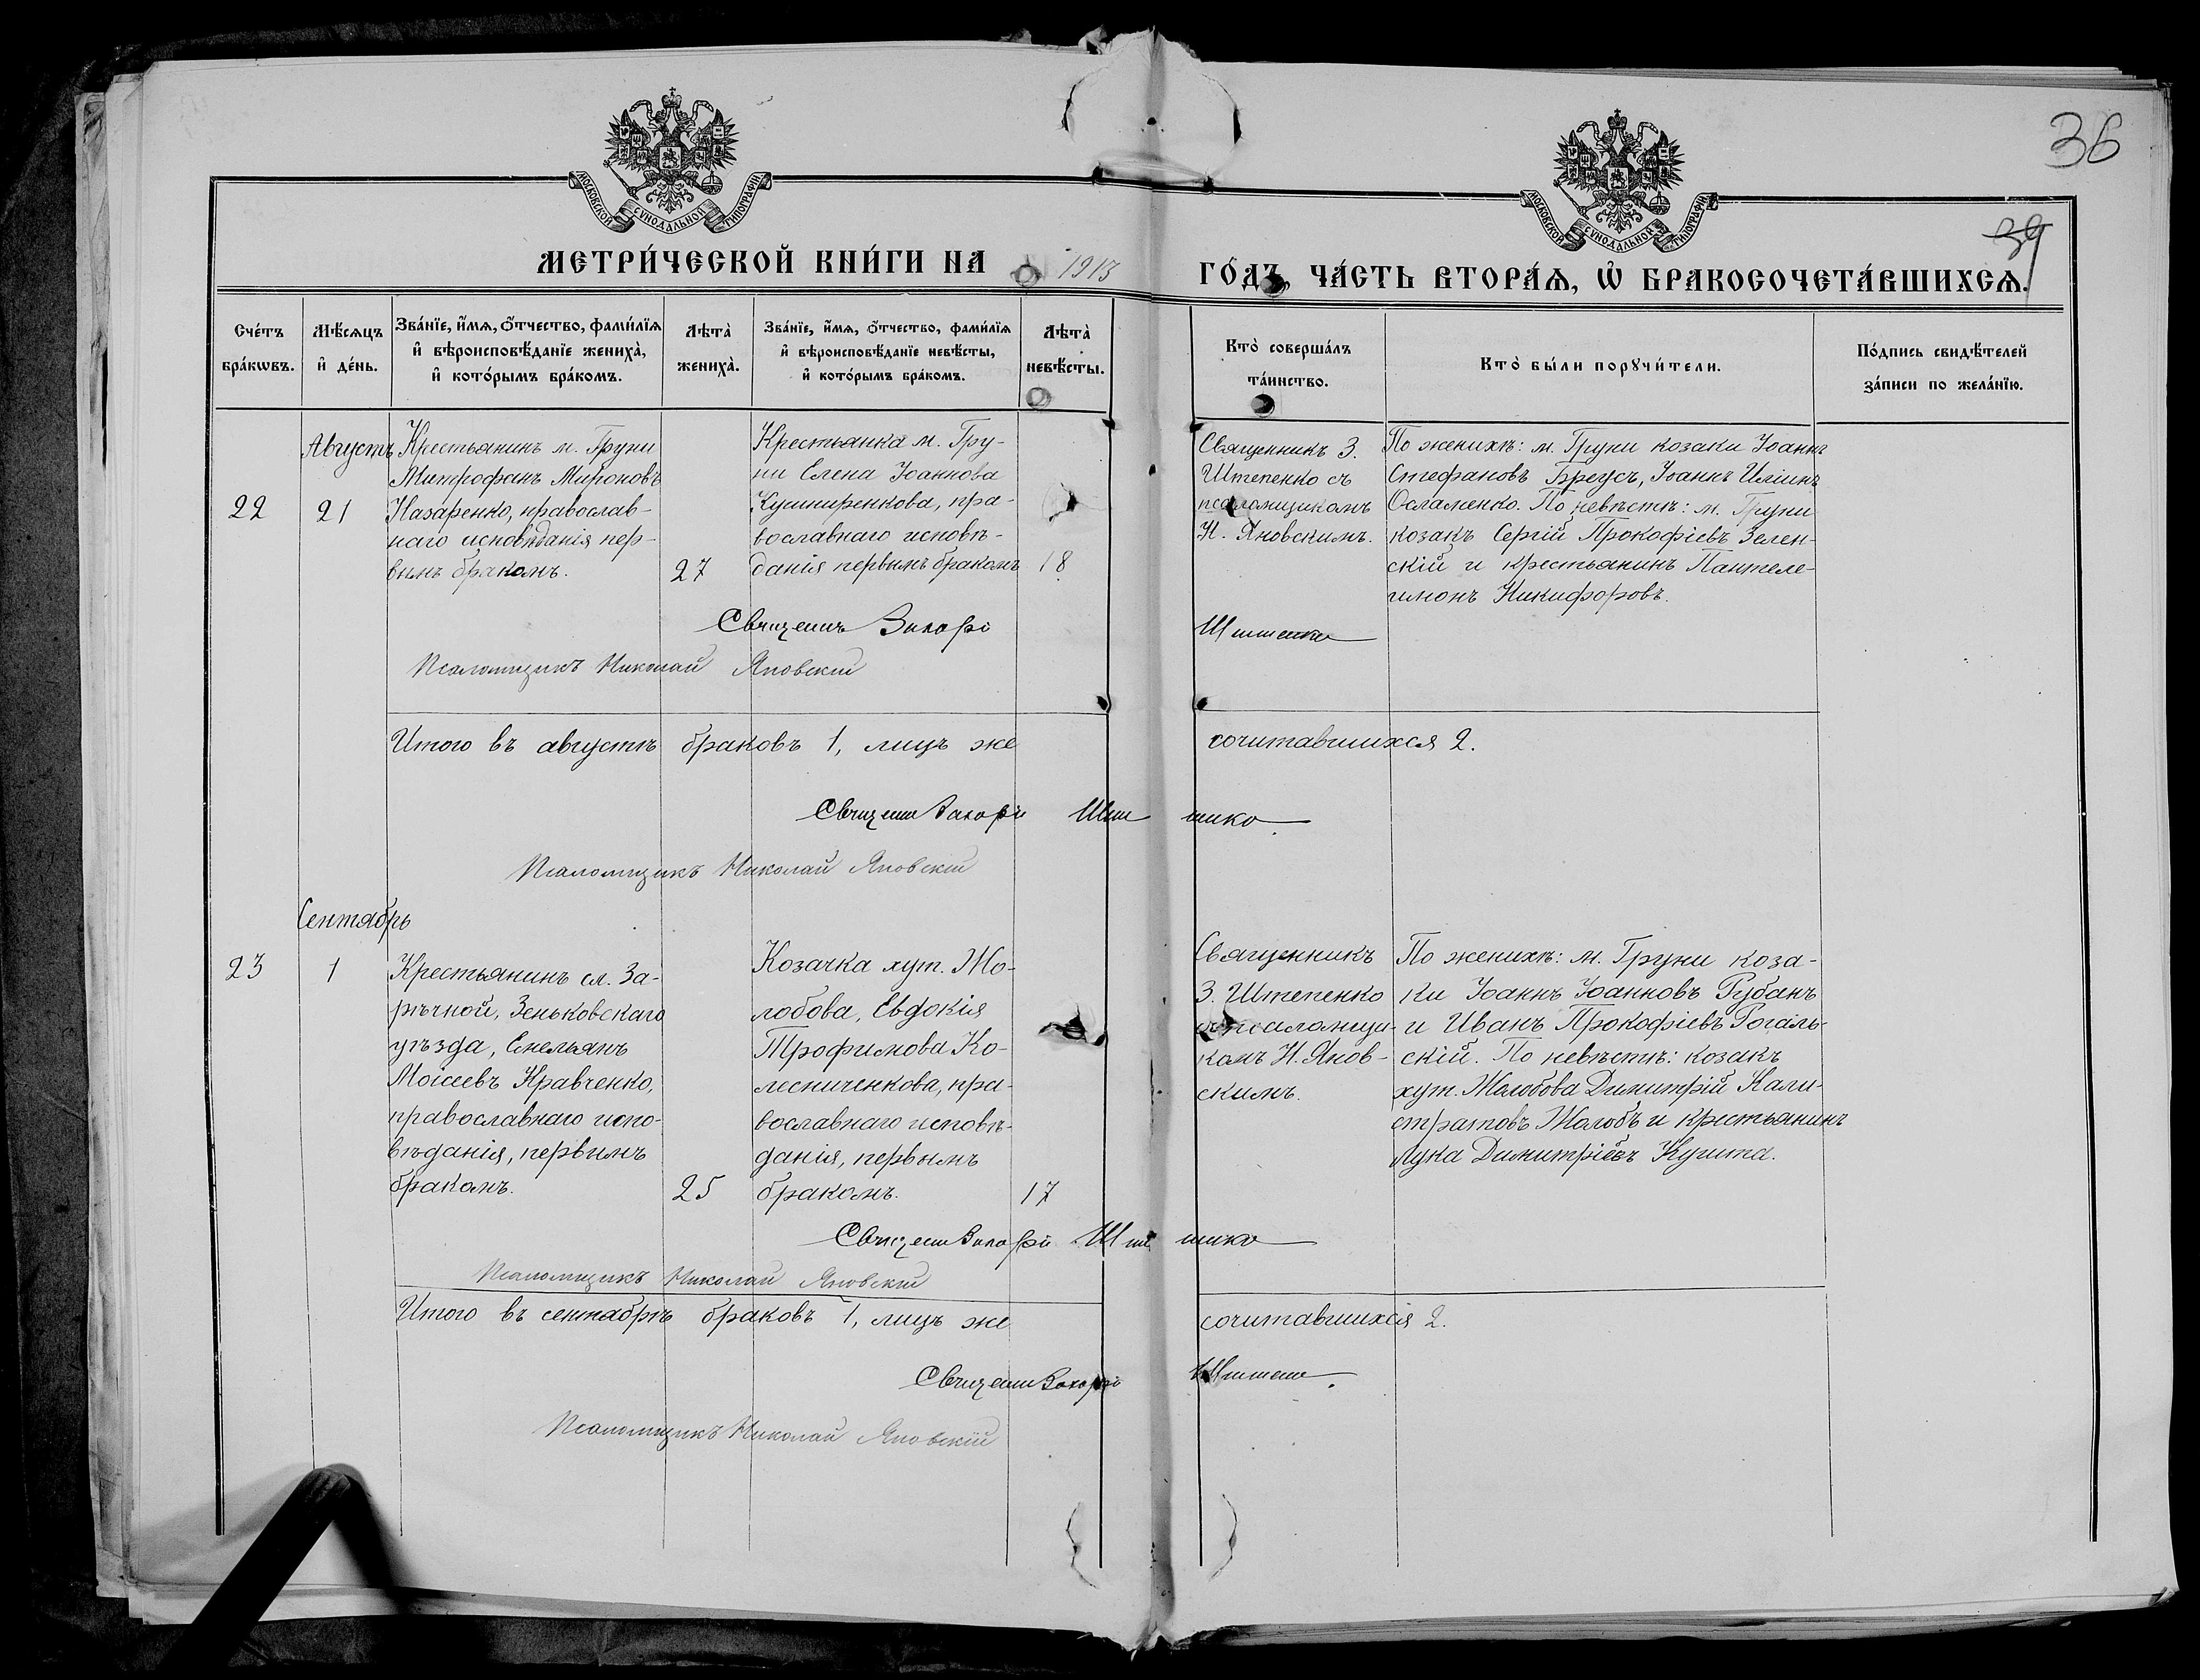 36
39
МОСКОВСКОЙ СѴНОДАЛЬНОЙ ТИПОГРАФІИ
МОСКОВСКОЙ СѴНОДАЛЬНОЙ ТИПОГРАФІИ
МЕТРИ́ЧЕСКОЙ КНИ́ГИ НА 1913
ГО́ДЪ, ЧА́СТЬ ВТОРА́Ѧ, Ѡ҆ БРАКОСОЧЕТА́ВШИХСѦ.
Сче́тъ
бра́кѡвъ.
Мѣ́сѧцъ
и҆ де́нь.
Зва́нїе, и҆́мѧ, ѻ҆́тчество, фами́лїѧ
и҆ вѣроисповѣ́данїе жениха̀,
и҆ кото́рымъ бра́комъ.
Лѣта̀
жениха̀.
Зва́нїе, и҆́мѧ, ѻ҆́тчество, фами́лїѧ
и҆ вѣроисповѣ́данїе невѣ́сты,
и҆ кото́рымъ бра́комъ.
Лѣта̀
невѣ́сты.
Кто̀ соверша́лъ
та́инство.
Кто̀ бы́ли порꙋчи́тели.
По́дпись свидѣ́телей
за́писи по жела́нїю.
22
Августъ
21
Крестьянинъ м. Груни
Митрофанъ Мироновъ
Назаренко, православ-
наго исповѣданія пер-
вымъ бракомъ.
27
Крестьянка м. Гру-
ни Елена Іоаннова
Кушниренкова, пра-
вославнаго исповѣ-
данія первымъ бракомъ
18
Священникъ З.
Штепенко съ
псаломщикомъ
Н. Яновскимъ.
По женихѣ: м. Груни козаки Іоаннъ
Стефановъ Бреусъ, Іоаннъ Иліинъ
Осламенко. По невѣстѣ: м. Груни
козакъ Сергій Прокофіевъ Зелен-
скій и крестьянинъ Пантеле-
имонъ Никифоровъ.
Священникъ Захарій Штепенко
Псаломщикъ Николай Яновскій
Итого въ августѣ браковъ 1, лицъ же сочитавшихся 2.
Священ Захарій Штепенко
Псаломщикъ Николай Яновскій
Сентябрь
23
1
Крестьянинъ сл. За-
рѣчной, Зеньковскаго
уѣзда, Емельянъ
Моісеевъ Кравченко,
православнаго испо-
вѣданія, первымъ
бракомъ.
25
Козачка хут. Жо-
лобова, Евдокія
Трофимова Ко-
лесниченкова, пра-
вославнаго исповѣ-
данія, первымъ
бракомъ.
17
Священникъ
З. Штепенко
съ псаломщи-
комъ Н. Янов-
скимъ.
По женихѣ: м. Груни коза-
ки Іоаннъ Іоанновъ Рубанъ
и Иванъ Прокофіевъ Рогаль-
скій. По невѣстѣ: козакъ
хут. Жолобова Димитрій Кали-
стратовъ Жолобъ и крестьянинъ
Лука Димитріевъ
Священ Захарій Штепенко
Псаломщикъ Николай Яновскій
Итого въ сентябрѣ браковъ 1, лицъ же сочитавшихся 2.
Священ Захарій Штепенко
Псаломщикъ Николай Яновскій